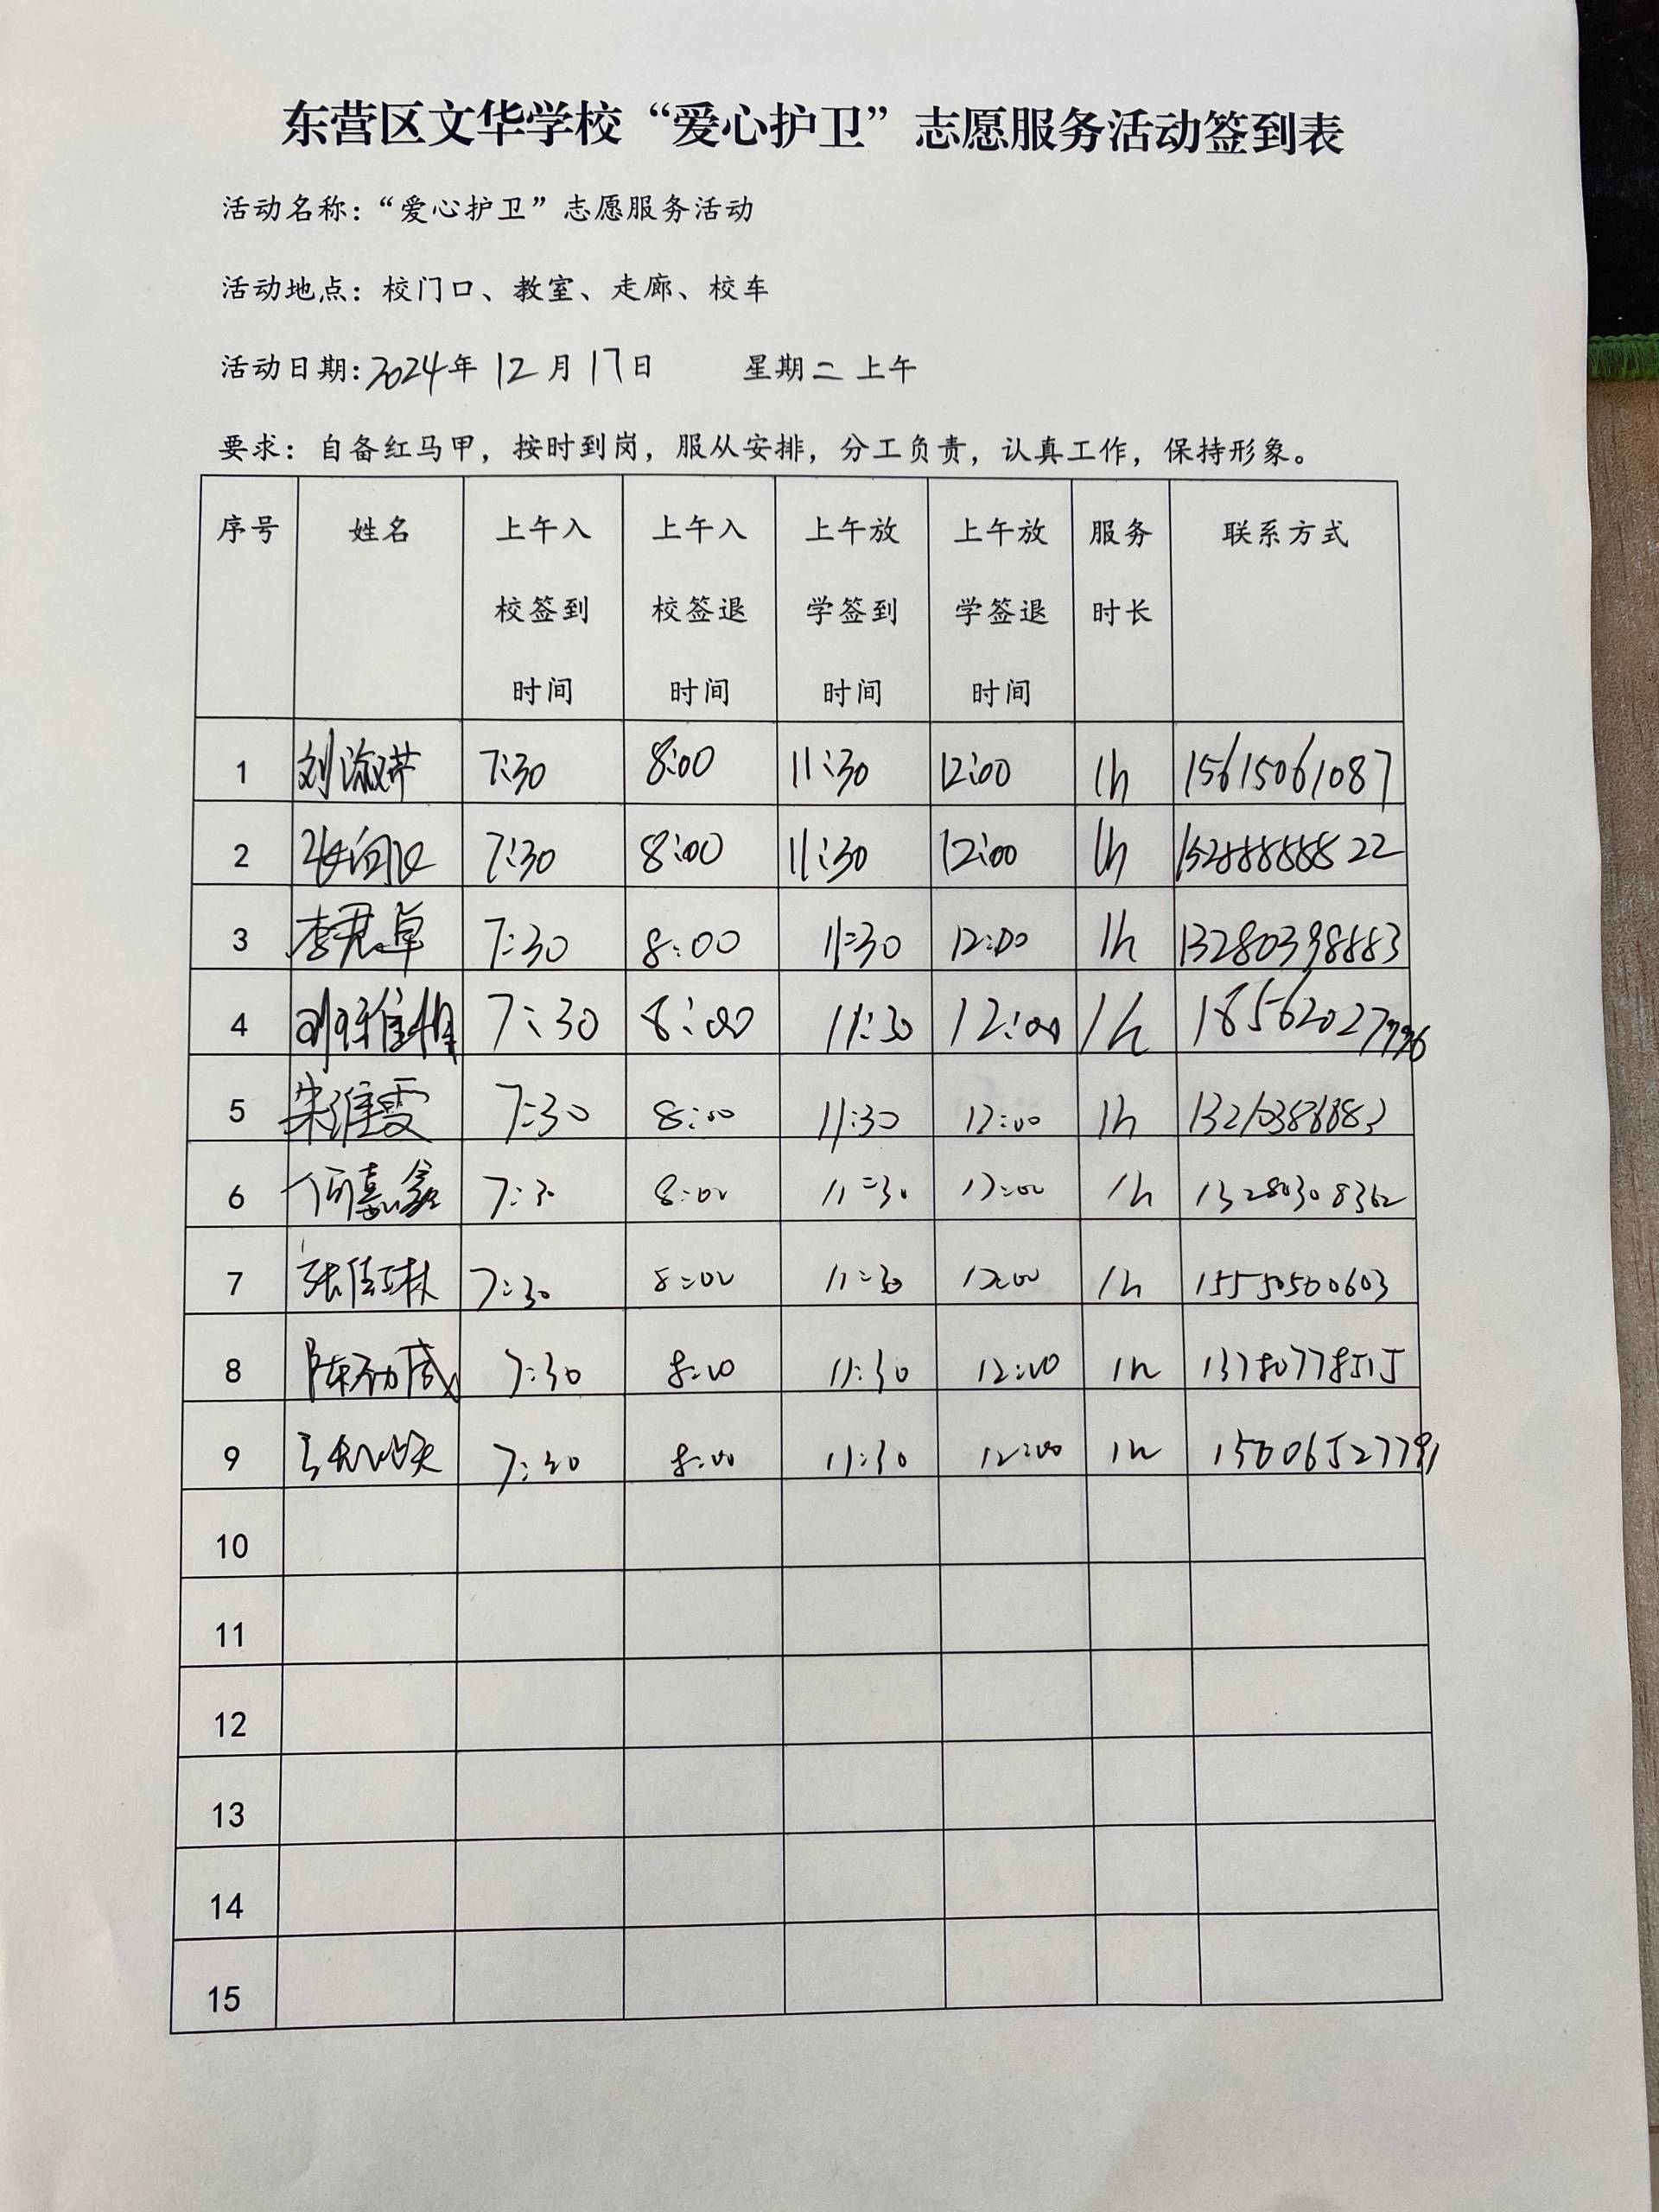 东营区文华学校“爱心护卫”志愿服务活动签到表
活动名称：“爱心护卫”志愿服务活动
活动地点：校门口、教室、走廊、校车
活动日期：2024年 12月 17日 星期二 上午
要求：自备红马甲，按时到岗，服从安排，分工负责，认真工作，保持形象。
序号 姓名 上午入校签到时间 上午入校签退时间 上午放学签到时间 上午放学签退时间 服务时长 联系方式
1 刘淑芹 7:30 8:00 11:30 12:00 1h 15615061087
2 7:30 8:00 11:30 12:00 1h
3 李君卓 7:30 8:00 11:30 12:00 1h 13280398883
4 7:30 8:00 11:30 12:00 1h
5 朱维雯 7:30 8:00 11:30 12:00 1h
6 何嘉鑫 7:30 8:00 11:30 12:00 1h 13280308362
7 张佳琳 7:30 8:00 11:30 12:00 1h 15550500603
8 7:30 8:00 11:30 12:00 1h 13780778515
9 7:30 8:00 11:30 12:00 1h
10
11
12
13
14
15